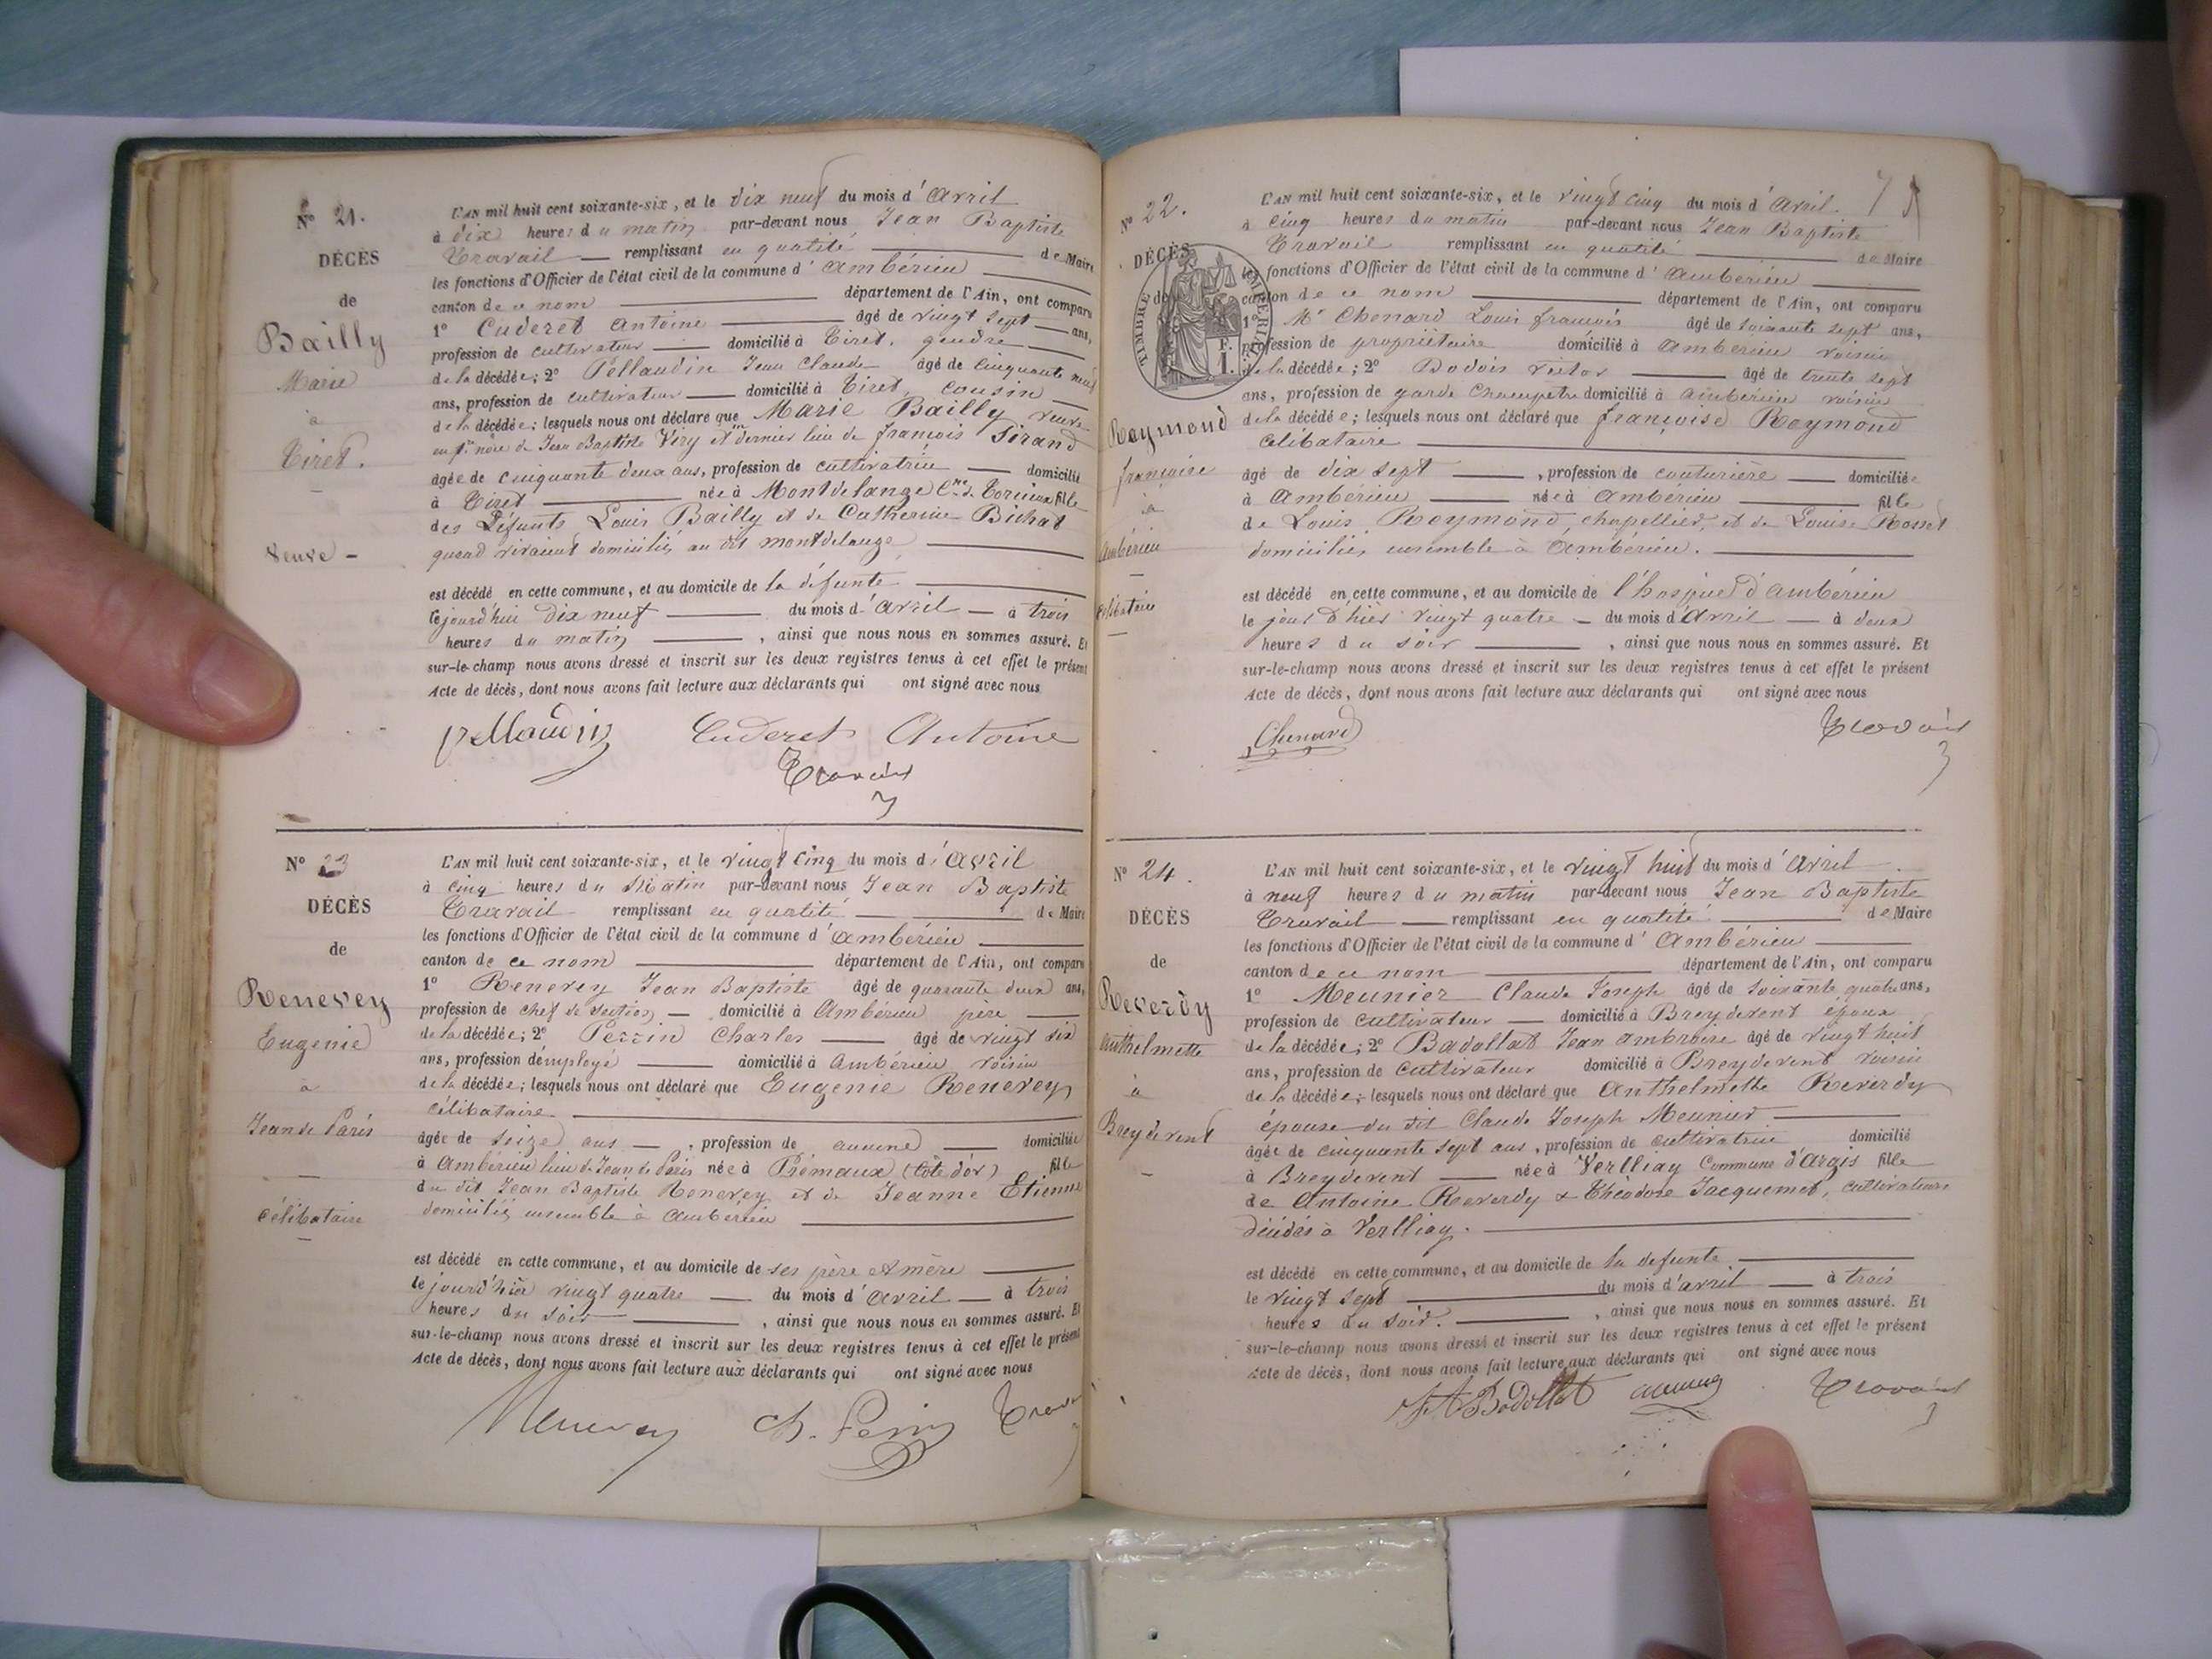 N° 21.
DÉCÈS
de
Bailly
Marie
à
Tiret.
Veuve -
L'AN mil huit cent soixante-six, et le dix neuf du mois d'avril
à dix heures du matin par-devant nous Jean Baptiste
Travail remplissant en qualité de Maire
les fonctions d'Officier de l'état civil de la commune d'ambérieu
canton de ce nom département de l'Ain, ont comparu
1° Cuderet antoine âgé de vingt sept ans,
profession de cultivateur domicilié à Tiret, gendre
de la décédée; 2° Pellaudin Jean Claude âgé de cinquante neuf
ans, profession de cultivateur domicilié à Tiret, cousin
de la décédée; lesquels nous ont déclaré que Marie Bailly veuve
de Jean Baptiste Véry et dernier lieu de françois Sirand
âgée de cinquante deux ans, profession de cultivatrice domicilié
à Tiret née à Montdelange fille
des Défunts Louis Bailly et de Catherine Bichat
quand vivaient domiciliés au dit montdelange
est décédé en cette commune, et au domicile de la défunte
cejourd'hui dix neuf du mois d'avril à trois
heures du matin, ainsi que nous nous en sommes assuré. Et
sur-le-champ nous avons dressé et inscrit sur les deux registres tenus à cet effet le présent
Acte de décès, dont nous avons fait lecture aux déclarants qui ont signé avec nous
Pellaudin Cuderet Antoine
Travail
N° 23
DÉCÈS
de
Renevey
Eugenie
à
Jean de Paris
célibataire
L'AN mil huit cent soixante-six, et le vingt cinq du mois d'avril
à cinq heures du Matin par-devant nous Jean Baptiste
Travail remplissant en qualité de Maire
les fonctions d'Officier de l'état civil de la commune d'ambérieu
canton de ce nom département de l'Ain, ont comparu
1° Renevey Jean Baptiste âgé de quarante deux ans,
profession de chef de section domicilié à Ambérieu père
de la décédée; 2° Perrin Charles âgé de vingt six
ans, profession d'employé domicilié à ambérieu voisin
de la décédée; lesquels nous ont déclaré que Eugenie Renevey
célibataire
âgée de seize ans, profession de aucune domiciliée
à ambérieu lieu de Jean de Paris née à Prémaux (Côte d'or) fille
du dit Jean Baptiste Renevey et de Jeanne Etienne
domiciliés ensemble à ambérieu
est décédé en cette commune, et au domicile de ses père et mère
le jourd'hier vingt quatre du mois d'avril à trois
heures du soir, ainsi que nous nous en sommes assuré. Et
sur-le-champ nous avons dressé et inscrit sur les deux registres tenus à cet effet le présent
Acte de décès, dont nous avons fait lecture aux déclarants qui ont signé avec nous
Renevey Ch. Perrin Travail
N° 22.
DÉCÈS
de
TIMBRE IMPÉRIAL
1 F.
Reymond
françoise
à
ambérieu
célibataire
L'AN mil huit cent soixante-six, et le vingt cinq du mois d'avril.
à cinq heures du matin par-devant nous Jean Baptiste
Travail remplissant en qualité de Maire
les fonctions d'Officier de l'état civil de la commune d'ambérieu
canton de ce nom département de l'Ain, ont comparu
1° Mr Chenard Louis françois âgé de soixante sept ans,
profession de propriétaire domicilié à ambérieu voisin
de la décédée; 2° Bodoit victor âgé de trente sept
ans, profession de garde Champetre domicilié à ambérieu voisin
de la décédée; lesquels nous ont déclaré que françoise Reymond
célibataire
âgé de dix sept, profession de couturière domiciliée
à ambérieu née à ambérieu fille
de Louis Reymond, chapellier, et de Louise Rosset
domiciliés ensemble à ambérieu.
est décédé en cette commune, et au domicile de l'hospice d'ambérieu
le jour d'hier vingt quatre du mois d'avril à deux
heures du soir, ainsi que nous nous en sommes assuré. Et
sur-le-champ nous avons dressé et inscrit sur les deux registres tenus à cet effet le présent
Acte de décès, dont nous avons fait lecture aux déclarants qui ont signé avec nous
Chenard Travail
N° 24.
DÉCÈS
de
Reverdy
Anthelmette
à
Breydevent
L'AN mil huit cent soixante-six, et le vingt huit du mois d'avril
à neuf heures du matin par-devant nous Jean Baptiste
Travail remplissant en qualité de Maire
les fonctions d'Officier de l'état civil de la commune d'ambérieu
canton de ce nom département de l'Ain, ont comparu
1° Meunier Claude Joseph âgé de soixante quatre ans,
profession de cultivateur domicilié à Breydevent époux
de la décédée; 2° Badollat Jean ambroise âgé de vingt huit
ans, profession de cultivateur domicilié à Breydevent voisin
de la décédée; lesquels nous ont déclaré que Anthelmette Reverdy
épouse du dit Claude Joseph Meunier
âgée de cinquante sept ans, profession de cultivatrice domicilié
à Breydevent née à Verlliay Commune d'argis fille
de antoine Reverdy & Théodore Jacquemet, cultivateurs
décédés à Verlliay.
est décédé en cette commune, et au domicile de la defunte
le vingt sept du mois d'avril à trois
heures du soir., ainsi que nous nous en sommes assuré. Et
sur-le-champ nous avons dressé et inscrit sur les deux registres tenus à cet effet le présent
Acte de décès, dont nous avons fait lecture aux déclarants qui ont signé avec nous
Badollat Travail